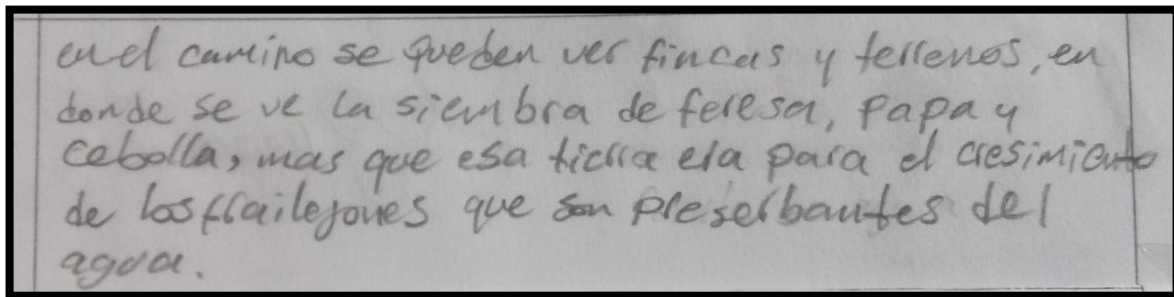 en el camino se pueden ver fincas y terrenos, en
donde se ve la siembra de feresa, papa y
cebolla, mas que esa tierra era para el cresimiento
de los frailejones que son preserbantes del
agua.